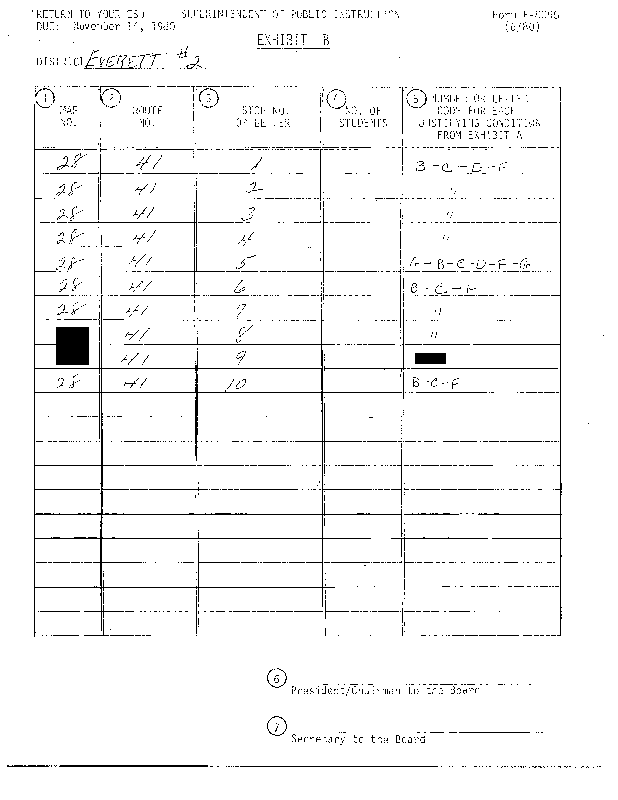 RETURN TO YOUR ESD SUPERINTENDENT OF PUBLIC INSTRUCTION Form
DUE: November 14, 1980 (6/80)
EXHIBIT B
DISTRICT EVERETT #2
1 2 3 4 5 NUMBER OR LETTER
MAP ROUTE STOP NO. NO. OF CODE FOR EACH
NO. NO. OR LETTER STUDENTS JUSTIFYING CONDITION
FROM EXHIBIT A
28 41 1 B-C-D-F
28 41 2 "
28 41 3 "
28 41 4 "
28 41 5 -B-C-D-F-G
28 41 6 B-C-F
28 41 7 "
41 8 "
41 9
28 41 10 B-C-F
6
President/Chairman to the Board
7
Secretary to the Board